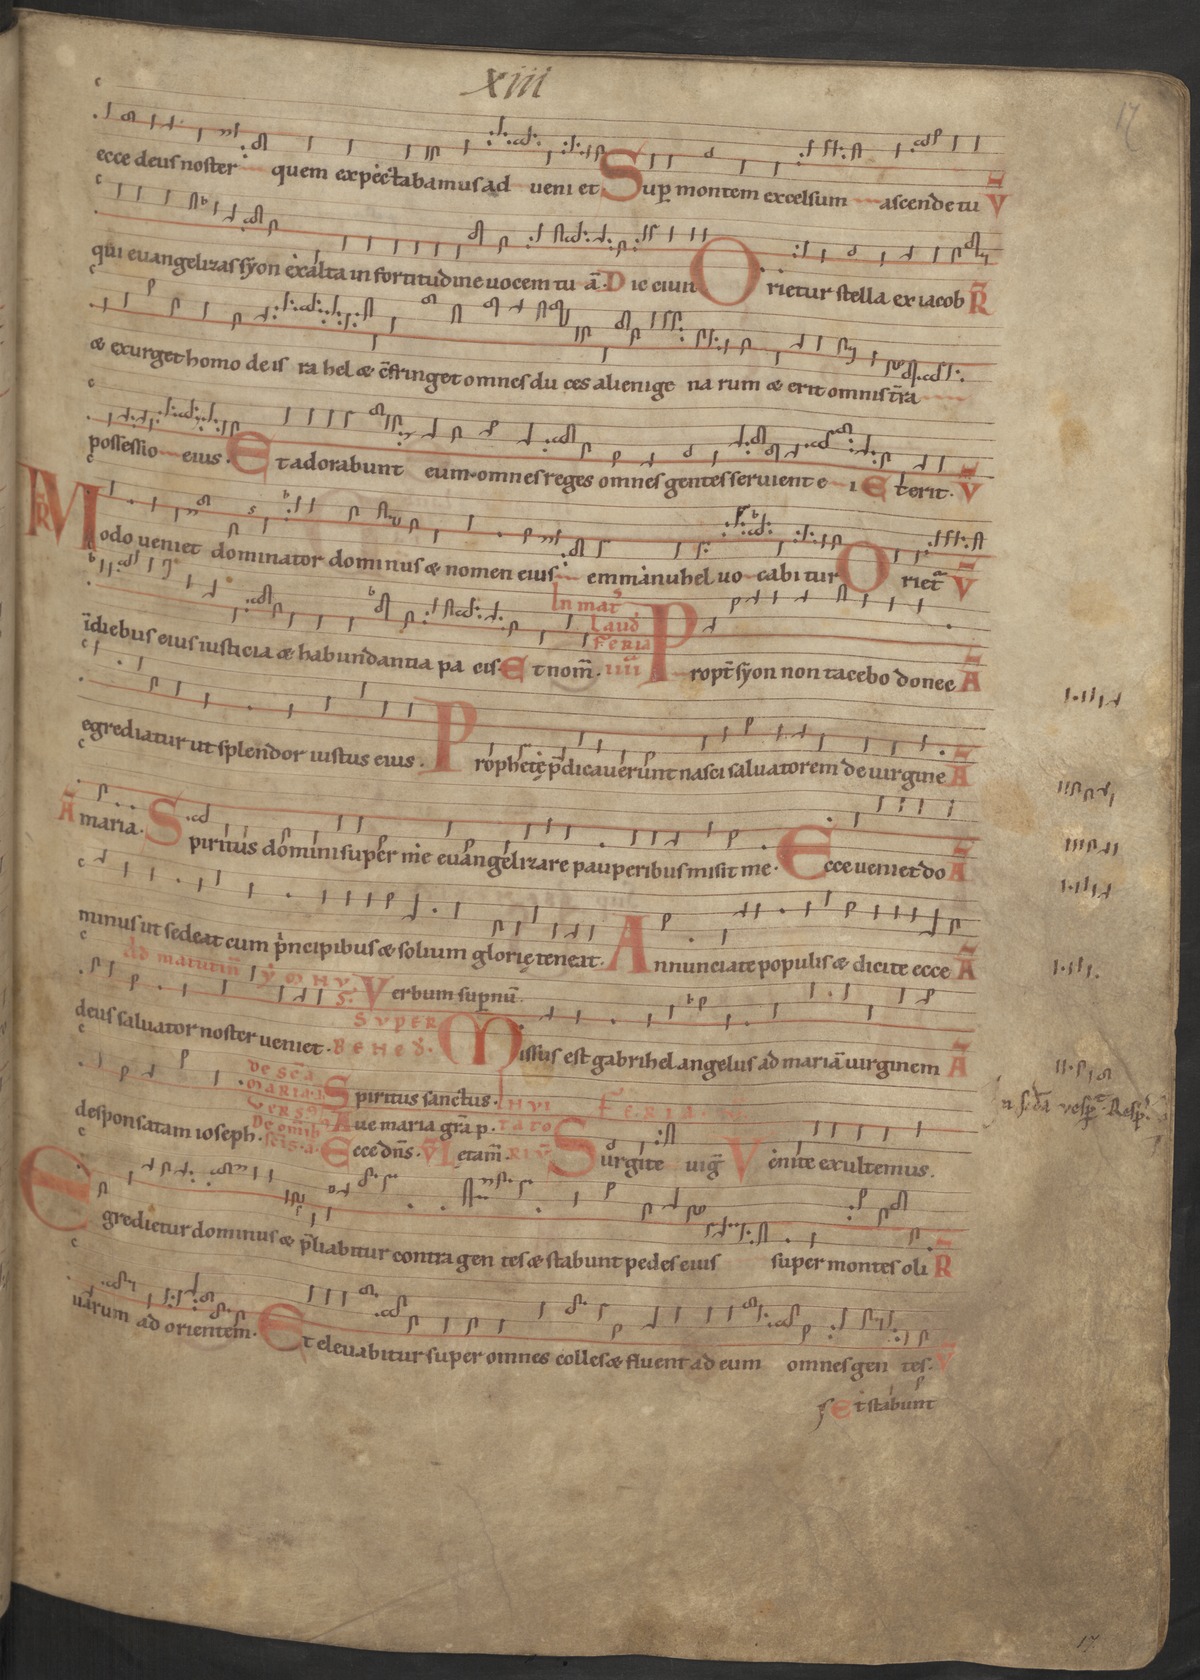 xiii
17
ecce deus noster quem expectabamus ad ueni et Sup montem excelsum ascende tu V
qui euangelizas syon exalta in fortitudine uocem tu ā. Dic ciuit Orietur stella ex iacob R
æ exurget homo de is ra hel æ cōfringet omnes du ces alienige na rum æ erit omnis tr̄a
possessio eius. Et adorabunt eum omnes reges omnes gentes seruient e i Et erit. V
R Modo ueniet dominator dominus æ nomen eius emmanuhel uo cabitur Orietᷓ V
In mat᷒
Laud
Feria
īdiebus eius iusticia æ habundantia pa cis. Et nom̄. iiii Propt̄ syon non tacebo donec A
egrediatur ut splendor iustus eius. Prophetę p̄dicauerunt nasci saluatorem de uirgine A
A maria. Spiritus domini super me euangelizare pauperibus misit me. Ecce ueniet do A
minus ut sedeat cum principibus æ solium glorię teneat. Annunciate populis æ dicite ecce A
Ad matutin̄ Y�āHỸ
S. Verbum sup̄nū
SUPER
deus saluator noster ueniet. BENED. Missus est gabrihel angelus ad mariā uirginem A
de sc̄a
MARIA. Spiritus sanctus. INVI FERIA.
Vers
Aue maria gr̄a p. TATO
desponsatam ioseph. Ecce dn̄s. V Letam̄. RIV̄ Surgite uig̃ Venite exultemus.
In sc̄da vesp̄ Resp̄
Egredietur dominus æ p̄liabitur contra gen tes æ stabunt pedes eius super montes oli R
uarum ad orientem. Et eleuabitur super omnes colles æ fluent ad eum omnes gen tes. V
Et stabunt
17.